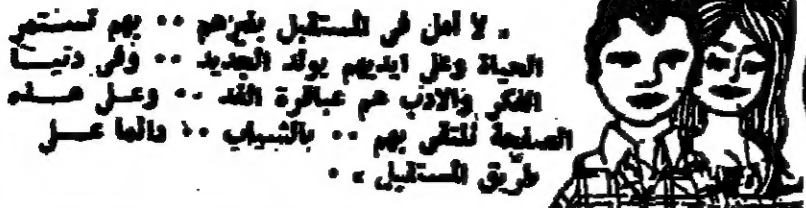 « لا أمل في المستقبل بغيرهم .. بهم تستمر
الحياة وعلى ايديهم يولد الجديد .. وفي دنيا
الفكر والادب هم عباقرة الغد .. وعلى هذه
الصفحة نلتقي بهم .. بالشباب .. دائما على
طريق المستقبل » .